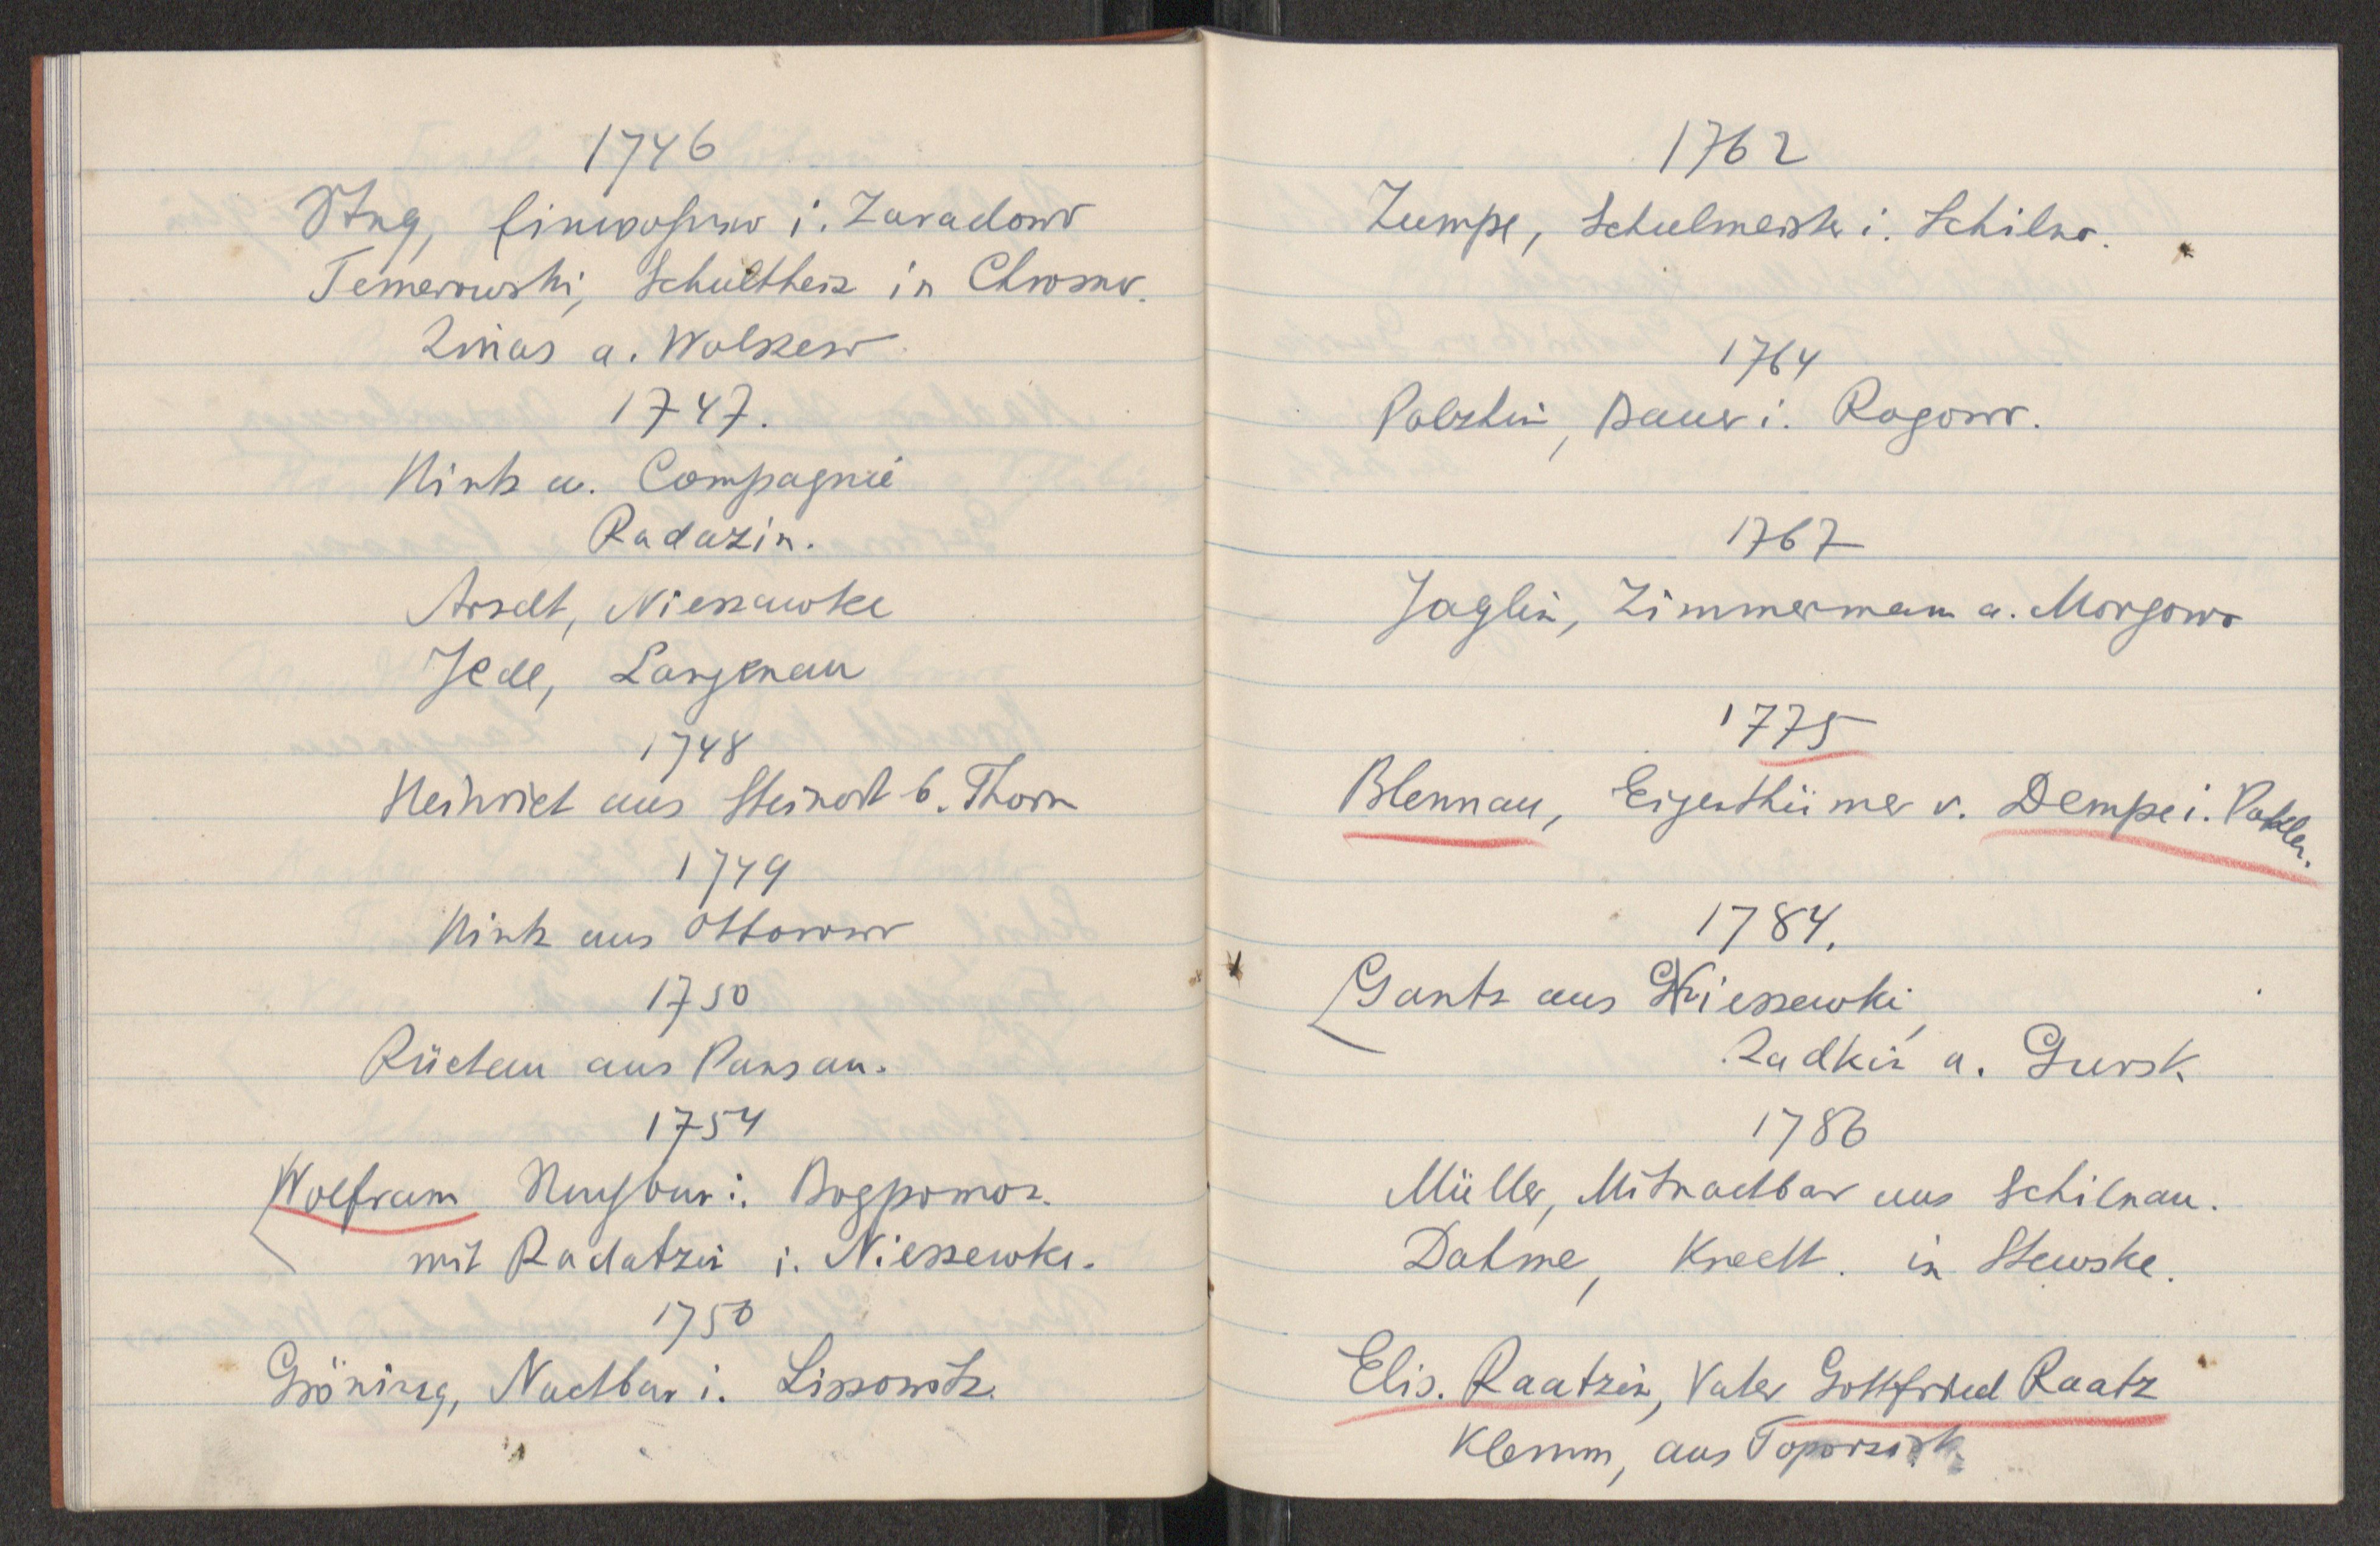 1746
Stug, Einwohner i. Zaradowo
Temerowski, Schultheis in Chrosno.
Zinas a. Wolszew
1747.
Hintz a. Compagnie
Radazin.
Arndt, Niessawke
Jede, Langenau
1748
Heinrich aus Steinort b. Thorn
1749
Hintz aus Ottorowo
1750
Rüchau aus Pansau.
1754
Wolfram Nachbar i. Bogpomoz.
mit Radatzin i. Niessewke.
1750
Gröning, Nachbar i. Lissowitz.
1762
Zumpe, Schulmeister i. Schilno.
1764
Polzhin, Bauer i. Rogowo.
1767
Jaglin, Zimmermann a. Morgowo
1775
Blennau, Eigenthümer v. Dempe i.
1784.
Gantz aus Niessewki,
Radkin a. Gursk.
1786
Müller, Mitnachbar aus Schilnau.
Dahme, Knecht. in Stewske.
Elis. Raatzin, Vater Gottfried Raatz
Klemm, aus